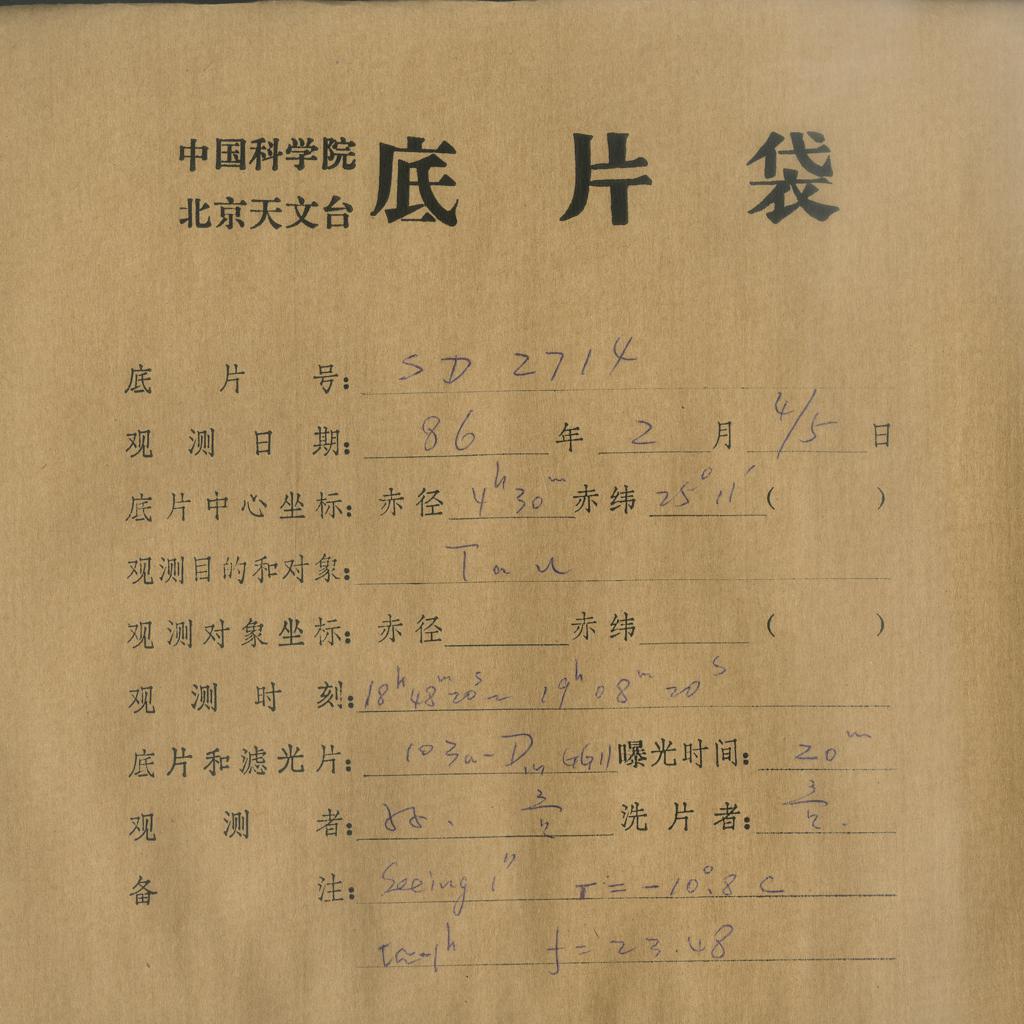 中国科学院
北京天文台
底片袋
底片号: SD 2714
观测日期: 86 年 2 月 4/5 日
底片中心坐标: 赤径 4h30m 赤纬 25°11′ ( )
观测目的和对象: Tau
观测对象坐标: 赤径 赤纬 ( )
观测时刻: 18h48m20s~ 19h08m20s
底片和滤光片: 103a-D GG11 曝光时间: 20m
观测者: 洗片者:
备注: Seeing 1″ T=-10°.8 C
f=23.48